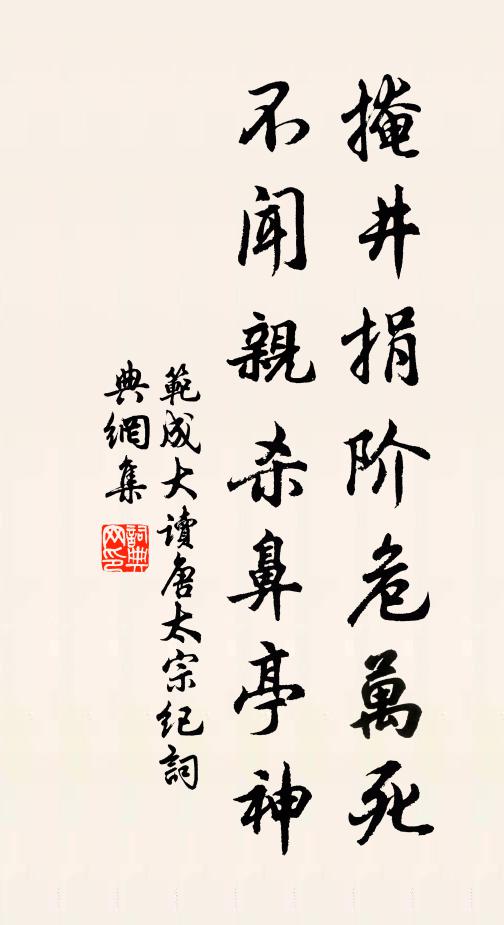 掩井捐阶危萬死
不闻親杀鼻亭神
範成大讀唐太宗纪詞
典網集
詞典
网印